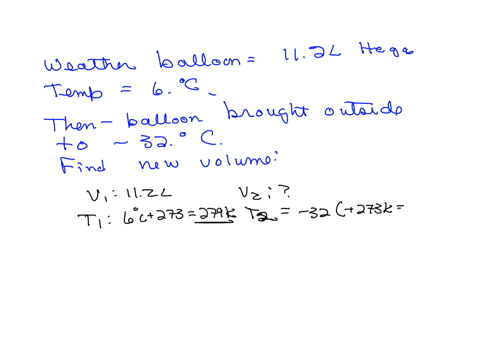 Weather balloon = 11.2L He gas
Temp = 6.°C.
Then - balloon brought outside
to - 32.° C.
Find new volume:
V₁: 11.2L V₂: ?
T₁: 6°C+273 = 279K T₂ = -32C+273K =